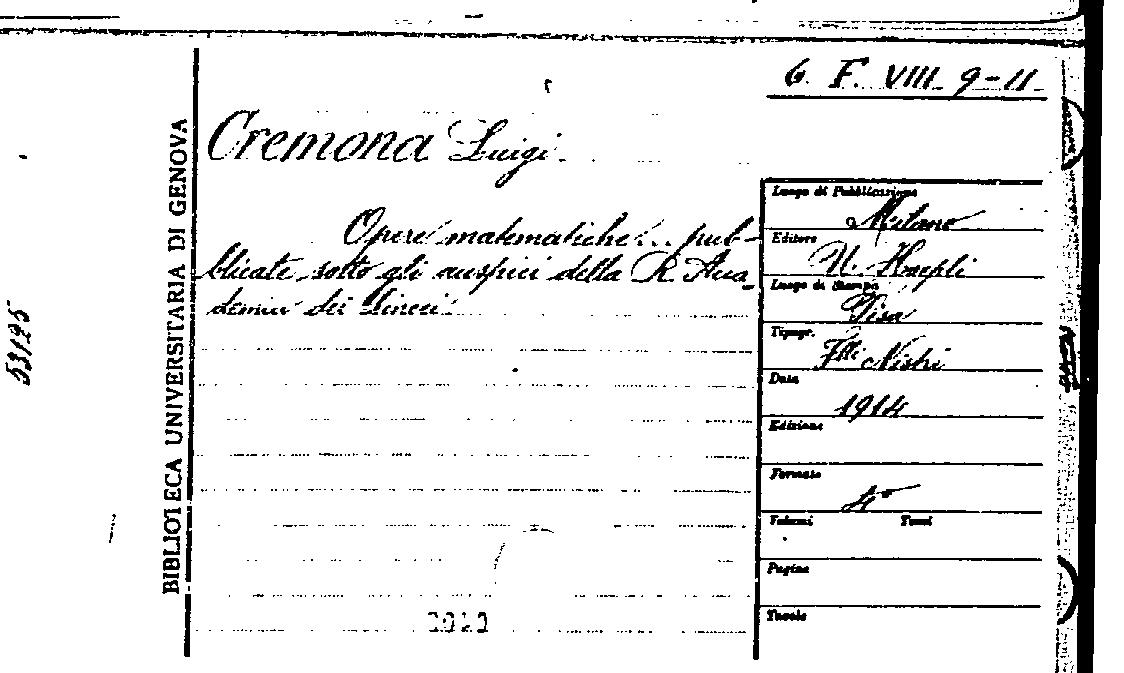 6. F. VIII. 9-11
Cremona Luigi.
Opere matematiche... pub-
blicate sotto gli auspici della R. Acca-
demia dei Lincei.
BIBLIOTECA UNIVERSITARIA DI GENOVA
53125
Luogo di Pubblicazione
Milano
Editore
U. Hoepli
Luogo di Stampa
Pisa
Tipogr.
Flli Nistri
Data
1914
Edizione
Formato
4º
Volumi Tomi
Pagine
Tavole